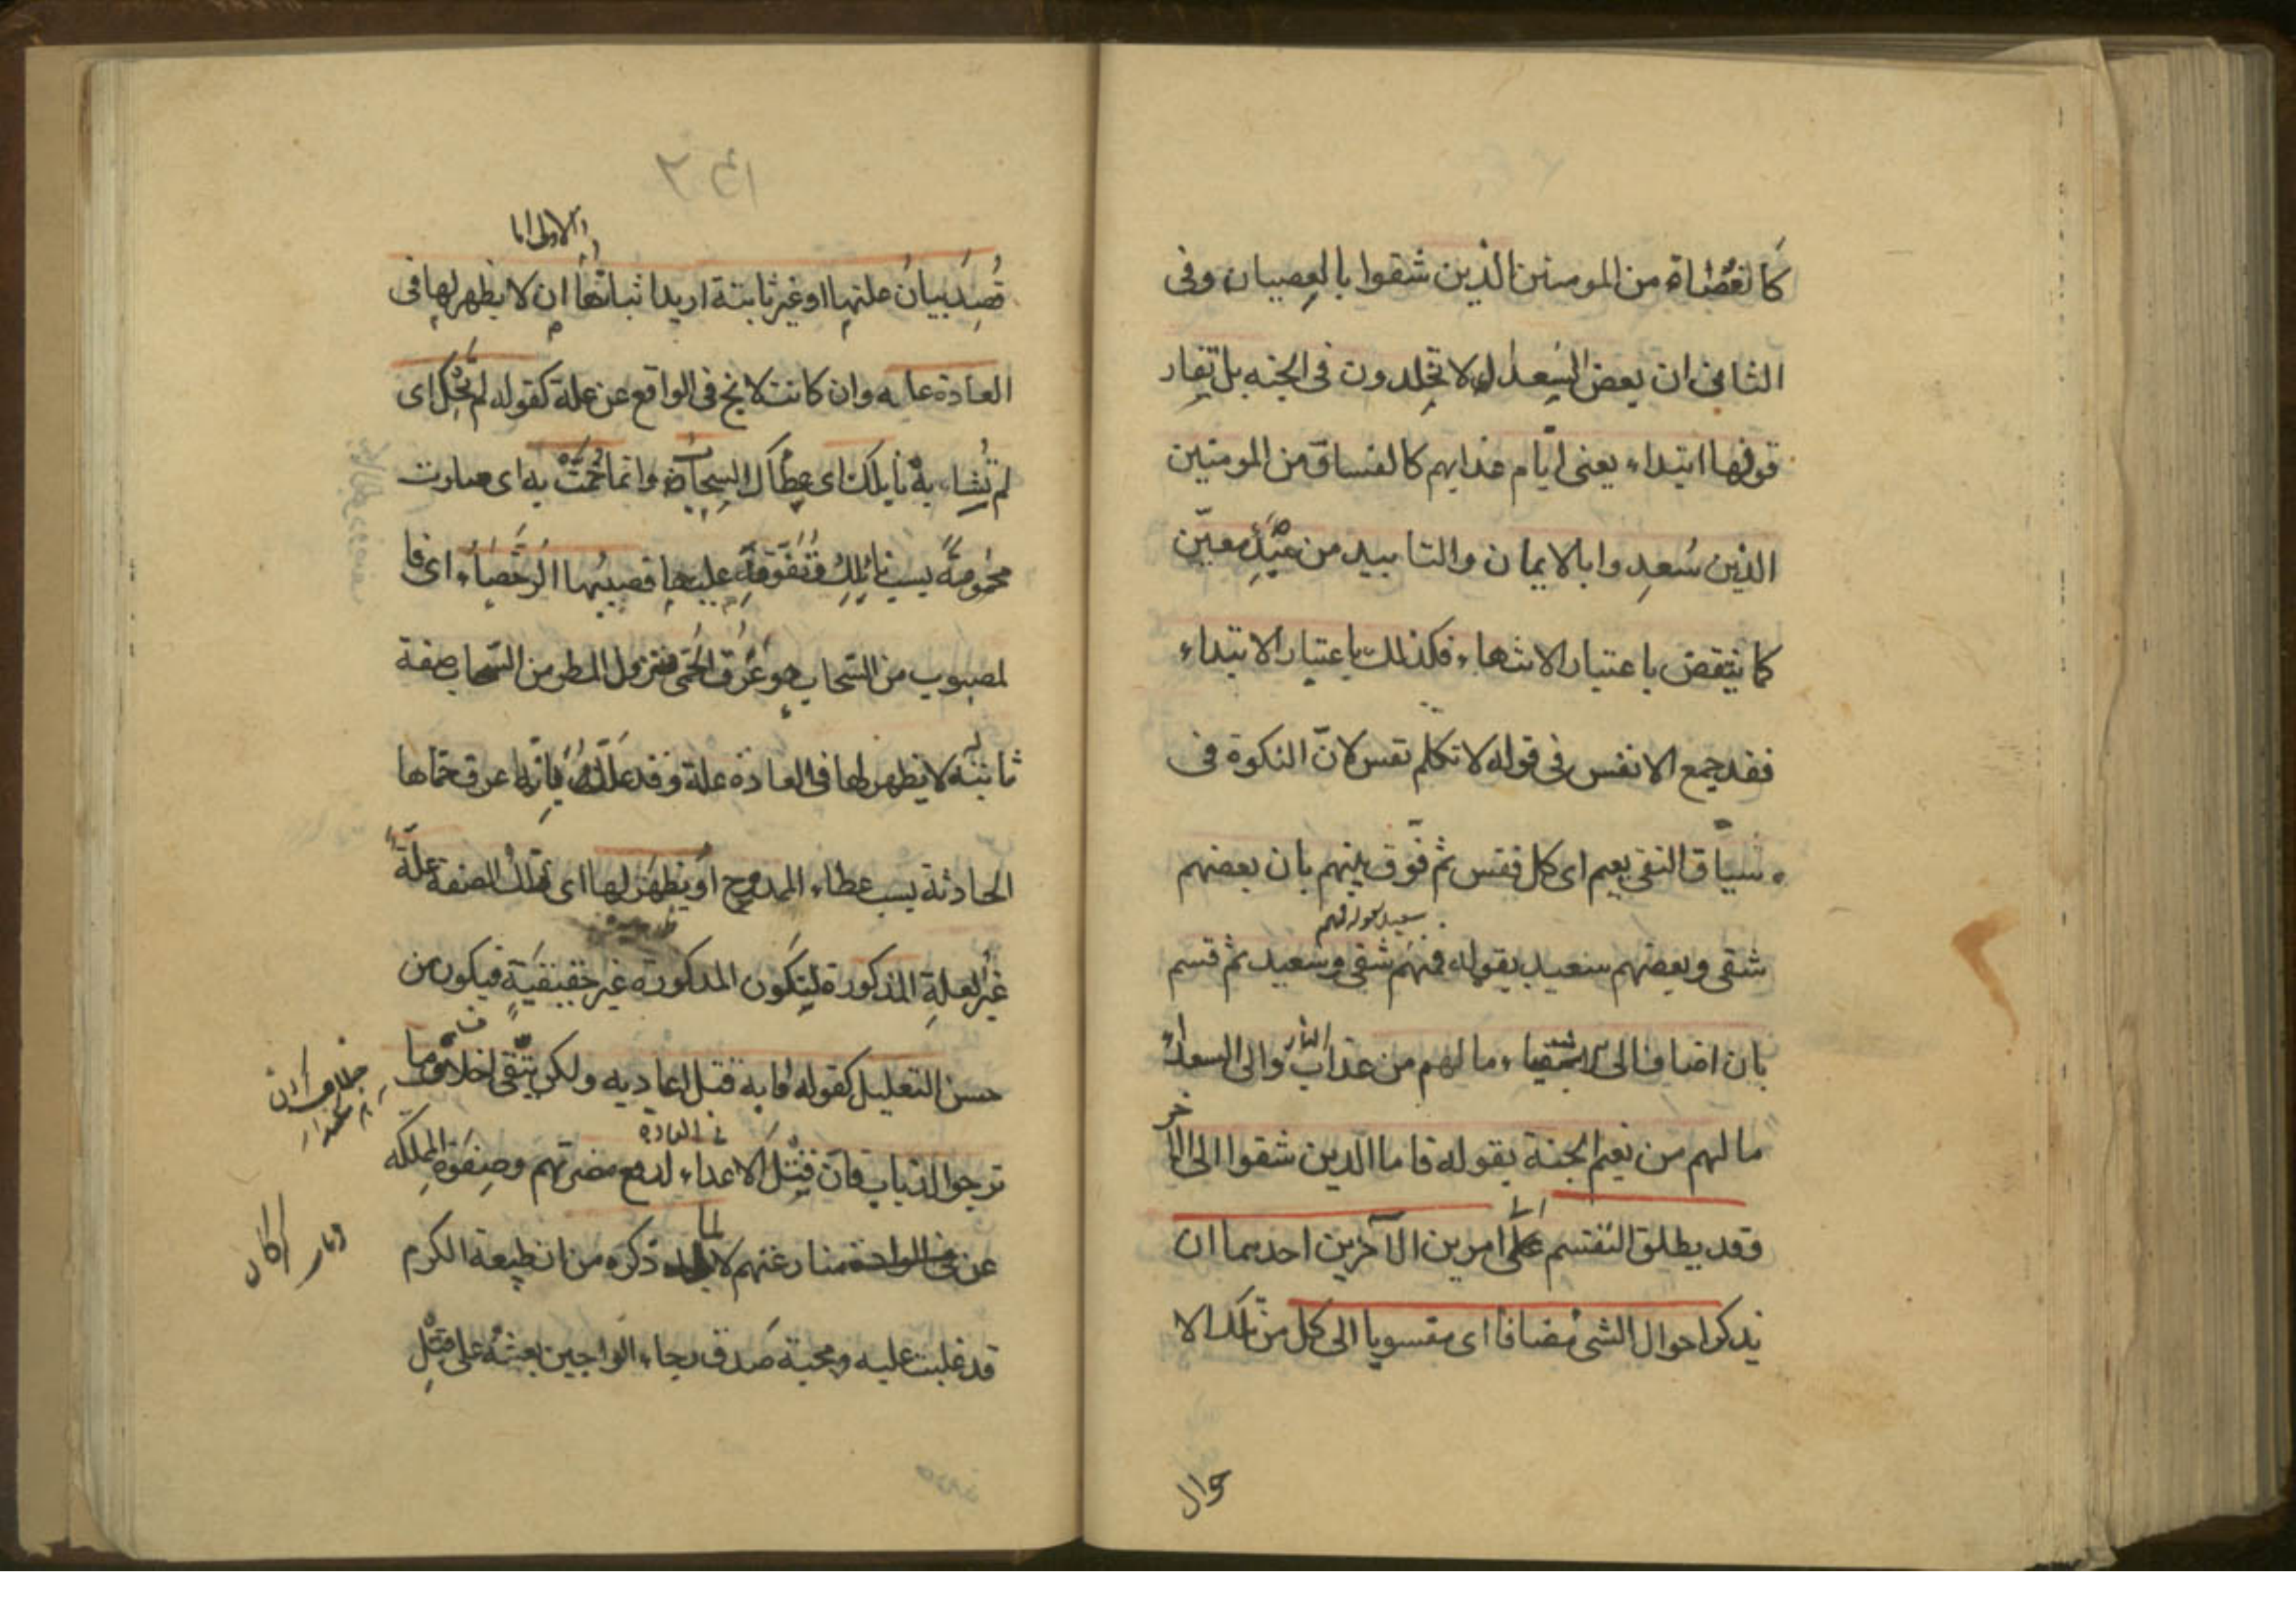 كالعصاة من المومنين الذين شقوا بالعصيان وفى
الثانى ان بعض السعداء لا تخلدون فى الجنه بل تفار
قونها ابتداء يعنى ايّام عذابهم كالفساق من المومنين
الذين سُعِدوا بالايمان والتابيد من مبدٍء معيّن
كما ينتقض باعتبار الانتهاء فكذلك باعتبار الابتداء
فقد جمع الانفس فى قوله لا تكلم نفس لانّ النكرة فى
سياق النفى يعم اى كل نفس ثم فرّق بينهم بان بعضهم
شقى وبعضهم سعيد بقوله فمنهم شقى وسعيد ثم قسم
بان اضاف الى الاشقياء ما لهم من عذاب النار والى السعداء
ما لهم من نعيم الجنة بقوله فاما الذين شقوا الى الاخر
وقد يطلق التقسم على امرين الآخرين احدهما ان
يذكر احوال الشئ مضافا اى منسوبا الى كل من تلك الا
حوال
١٥٢
الاولى اما
قُصِدَ بيانُ علتها او غير ثابتة اريد اثباتها ان لا يظهر لها فى
العادة علة وان كانت لا تخ فى الواقع عن علة كقوله لم تَحْكِ اى
لم تُشابه نايلك اى عطاك السحاب وانما حُمَّتْ به اى صارت
محمومةً بسبب نائلك وتَفَوُّقِه عليها فصبيبها الرُّحَضاء اى فا
لمصبوب من السّحاب هو عَرَق الحُمّى فنزول المطر من السّحاب صفة
ثابتة لا يظهر لها فى العادة علة وقد علّله بانّه عرق حمّاها
الحادثة بسبب عطاء الممدوح او يظهر لها اى لتلك الصفة علّةٌ
غيرُ العلةِ المذكورة لتكون المذكورة غير حقيقيةٍ فيكون من
حسن التعليل كقوله مابه قتل اعاديه ولكن يتّقى اخلاف ما
ترجوا الذياب فانّ قتْلَ الاعداء فى العادة لدفع مضرتهم وصِفوَة المملكه
عن منازعتهم لا لما ذكره من ان طبيعة الكرم
قد غلبت عليه ومحبة صدق رجاء الراجين بعثته على قتْلِ